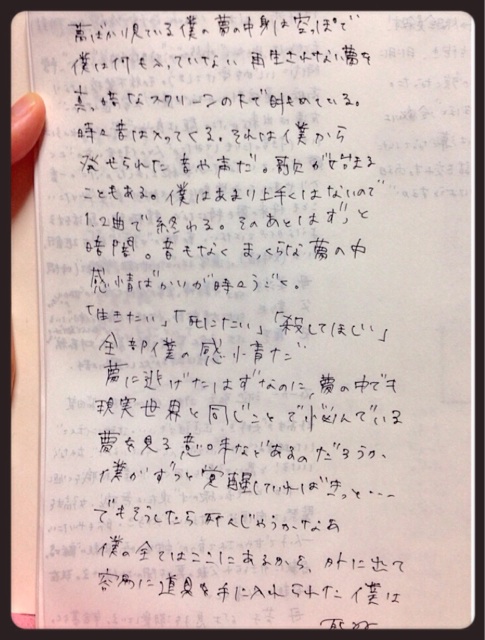 夢ばかり見ている僕の夢の中身は空っぽで
僕は何もみていない 再生されない夢を
真っ暗なスクリーンの下で眺めている。
時々音は入ってくる。それは僕から
発せられた音や声だ。歌が始まる
こともある。僕はあまり上手くはないので
1.2曲で終わる。そのあとはずっと
暗闇。音もなく まっくらな夢の中
感情ばかりが時々うごく。
「生きたい」「死にたい」「殺してほしい」
全部僕の感情だ
夢に逃げたはずなのに、夢の中でも
現実世界と同じことで悩んでいる
夢を見る意味などあるのだろうか
僕がずっと覚醒していればきっと・・・
でもそうしたら死んじゃうかなあ
僕の全てはここにあるから、外に出て
容易に道具を手に入れられた僕は